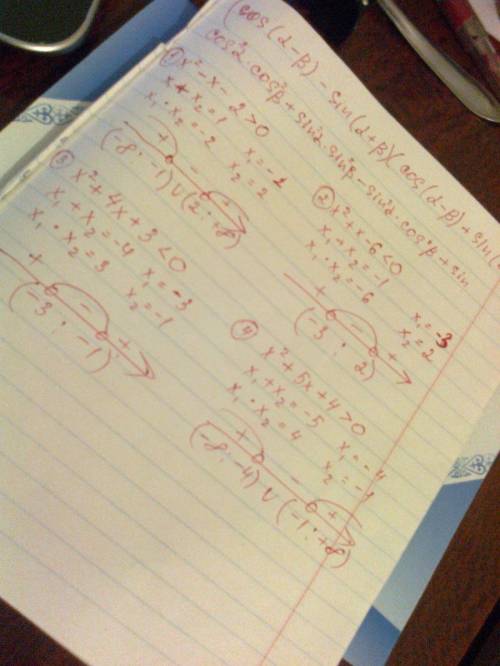 (cos(α-β) - sin(α+β)(cos(α-β) + sin(
cos²α·cos²β + sin²α·sin²β - sin²α·cos²β + sin
① x² - x - 2 > 0
x₁ + x₂ = 1
x₁ · x₂ = -2
x₁ = -1
x₂ = 2
+ - +
(-∞; -1) U (2; +∞)
② x² + x - 6 < 0
x₁ + x₂ = -1
x₁ · x₂ = -6
x₁ = -3
x₂ = 2
+ - +
(-3 ; 2)
③ x² + 4x + 3 < 0
x₁ + x₂ = -4
x₁ · x₂ = 3
x₁ = -3
x₂ = -1
+ - +
(-3 ; -1)
④ x² + 5x + 4 > 0
x₁ + x₂ = -5
x₁ · x₂ = 4
x₁ = -4
x₂ = -1
+ - +
(-∞; -4) U (-1; +∞)